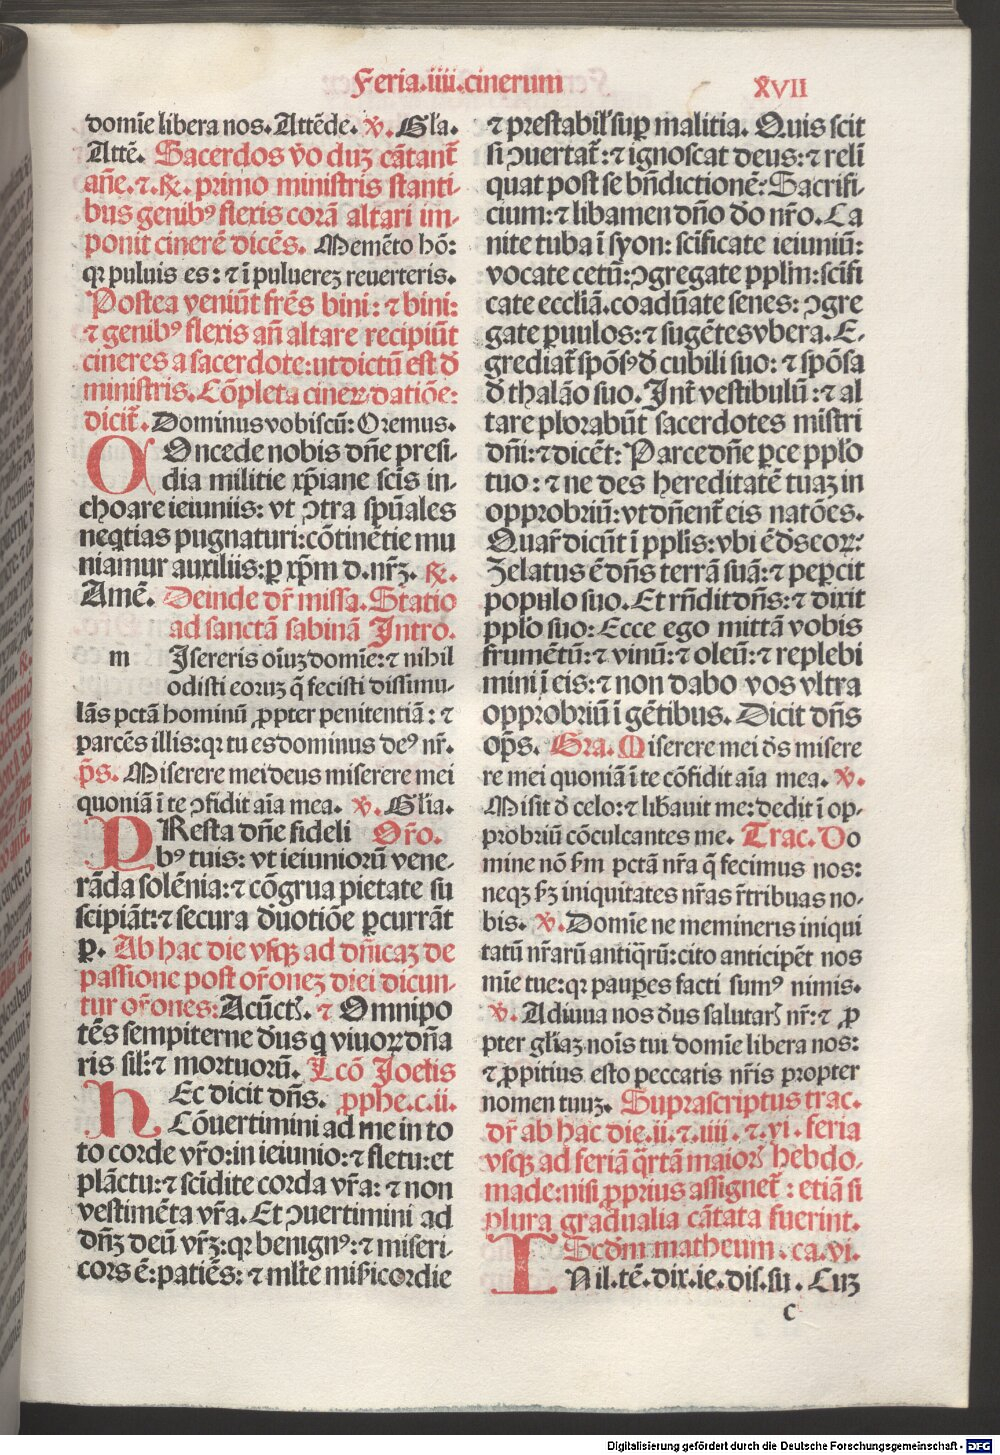 Feria.iiii.cinerum
XVII
domīe libera nos. Attēde. v̄. Gl'a.
Attē. Sacerdos v̄o duʒ cātant̄
an̄e.⁊.R̄. primo ministris stanti-
bus genibꝰ flexis corā altari im-
ponit cinerē dicēs. Memēto hō:
qꝛ puluis es: ⁊ ī puluereʒ reuerteris.
Postea veniūt fr̄es bini: ⁊ bini:
⁊ genibꝰ flexis an̄ altare recipiūt
cineres a sacerdote: ut dictū est đ
ministris. Cōpleta cineꝝ datiōe:
dicit̄. Dominus vobiscū: Oremus.
COncede nobis dn̄e presi-
dia militie xp̄iane scīs in-
choare ieiuniis: vt ꝯtra sp̄uales
neq̄tias pugnaturi: cōtinētie mu
niamur auxiliis: ꝑ xp̄m d. nr̄ʒ. R̄.
Amē. Deinde dr̄ missa. Statio
ad sanctā sabinā Intro.
m Isereris oīuʒ domīe: ⁊ nihil
odisti eoruʒ q̄ fecisti dissimu-
lās pctā hominū ꝓpter penitentiā: ⁊
parcēs illis: qꝛ tu es dominus deꝰ nr̄.
p̄s. Miserere mei deus miserere mei
quoniā ī te ꝯfidit aīa mea. v̄. Gl'ia.
PResta dn̄e fideli Or̄o.
bꝰ tuis: vt ieiuniorū vene-
rāda solēnia: ⁊ cōgrua pietate su
scipiāt: ⁊ secura đuotiōe ꝑcurrāt
ꝑ. Ab hac die vsqʒ ad dn̄icaʒ de
passione post or̄oneʒ diei dicun-
tur or̄ones: A cūctꝭ. ⁊ Omnipo
tēs sempiterne đus q viuoꝝ dn̄a
ris sil': ⁊ mortuorū. Lcō Joelis
HEc dicit dn̄s. ꝓphe.c.ii.
Cōuertimini ad me in to
to corde vr̄o: in ieiunio: ⁊ fletu: et
plāctu: ⁊ scīdite corda vr̄a: ⁊ non
vestimēta vr̄a. Et ꝯuertimini ad
dn̄ʒ deū vr̄ʒ: qꝛ benignꝰ: ⁊ miseri-
cors ē: patiēs: ⁊ ml'te mīsericordie
⁊ prestabil' suꝑ malitia. Quis scit
si ꝯuertat̄: ⁊ ignoscat deus: ⁊ reli
quat post se bn̄dictionē: Sacrifi-
cium: ⁊ libamen dn̄o đo nr̄o. Ca
nite tuba ī syon: scīficate ieiuniū:
vocate cetū: ꝯgregate ppl'm: scīfi
cate eccliā. coadūate senes: ꝯgre
gate ꝑuulos: ⁊ sugētes vbera. E-
grediat̄ spōsꝰ đ cubili suo: ⁊ spōsa
đ thalāo suo. Int̄ vestibulū: ⁊ al
tare plorabūt sacerdotes mīstri
dn̄i: ⁊ dicēt: Parce dn̄e ꝑce ppl'o
tuo: ⁊ ne des hereditatē tuaʒ in
opprobriū: vt dn̄ent̄ eis natōes.
Quar̄ dicūt ī ppl'is: vbi ē đs eoꝝ:
Zelatus ē dn̄s terrā suā: ⁊ peꝑcit
populo suo. Et rn̄dit dn̄s: ⁊ dixit
ppl'o suo: Ecce ego mittā vobis
frumētū: ⁊ vinū: ⁊ oleū: ⁊ replebi
mini ī eis: ⁊ non dabo vos vltra
opprobriū ī gētibus. Dicit dn̄s
op̄s. Gra. Miserere mei đs misere
re mei quoniā ī te cōfidit aīa mea. v̄.
Misit đ celo: ⁊ lib̄auit me: dedit ī op-
probriū cōculcantes me. Trac. Do
mine nō s̄m pctā nr̄a q̄ fecimus nos:
neqʒ s̄ʒ iniquitates nr̄as r̄tribuas no-
bis. v̄. Domīe ne memineris iniqui
tatū nr̄arū antiq̄rū: cito anticipēt nos
mīe tue: qꝛ pauꝑes facti sumꝰ nimis.
v̄. Adiuua nos đus salutarꝭ nr̄: ⁊ ꝓ
pter gl'iaʒ noīs tui domīe libera nos:
⁊ ꝓpitius esto peccatis nr̄is propter
nomen tuuʒ. Suprascriptus trac.
dr̄ ab hac die.ii.⁊.iiii.⁊.vi. feria
vsqʒ ad feriā q̄rtā maiorꝭ hebdo-
made: nisi ꝓprius assignet̄: etiā si
plura gradualia cātata fuerint.
IScđm matheum.ca.vi.
Nil.tē.dix.ie.dis.su. Cuʒ
c
Digitalisierung gefördert durch die Deutsche Forschungsgemeinschaft - DFG